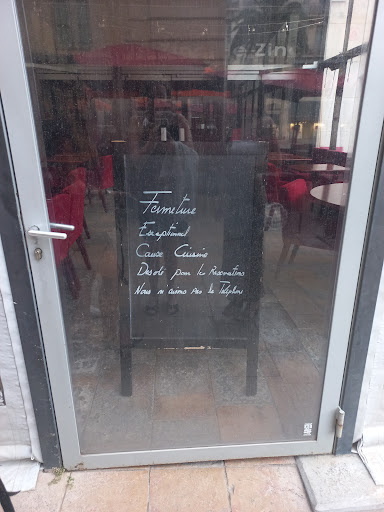 e-Zinc
Fermeture
Exceptionnel
Cause Cuisine
Désolé pour les Réservations
Nous n'avions pas les Téléphon